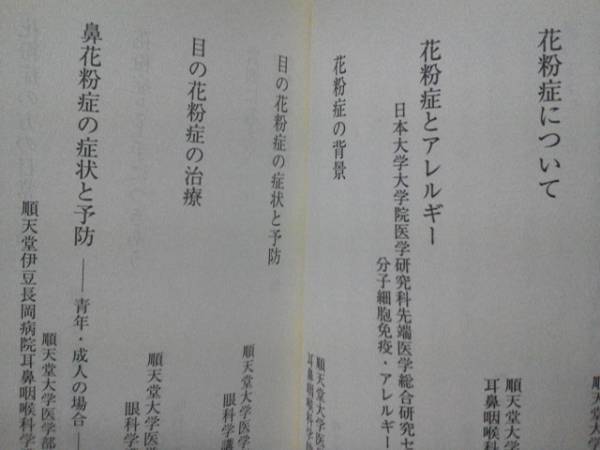 花粉症について
順天堂大学
耳鼻咽喉科
花粉症とアレルギー
日本大学大学院医学研究科先端医学総合研究セ
分子細胞免疫・アレルギー
花粉症の背景
順天堂大学医
耳鼻咽喉科学
目の花粉症の症状と予防
順天堂大学医学
眼科学講
目の花粉症の治療
順天堂大学医
眼科学
鼻花粉症の症状と予防 ── 青年・成人の場合 ─
順天堂大学医学部
順天堂伊豆長岡病院耳鼻咽喉科学